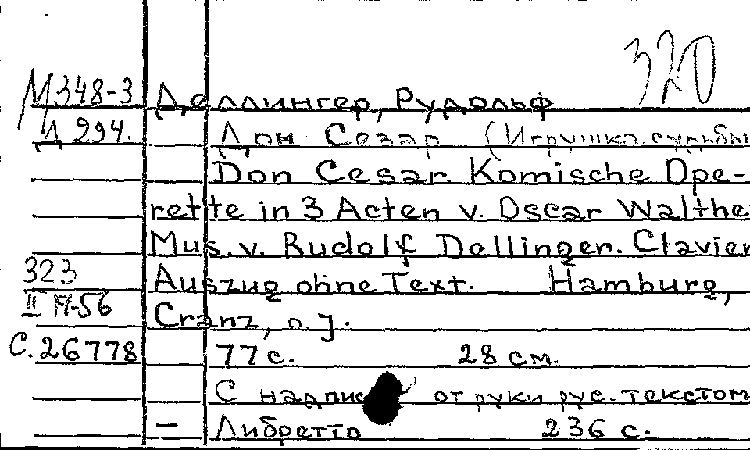 320
М348-3 Деллингер, Рудольф
Д 294. Дон Сезар (Игрушка судьбы
Don Cesar Komische Ope-
rette in 3 Acten v. Oscar Walthe
Mus. v. Rudolf Dellinger. Clavier
323 Auszug ohne Text. Hamburg,
Cranz, o. J.
С. 26778 77 с. 28 см.
С надпис от руки рус. текстом
— Либретто 236 с.